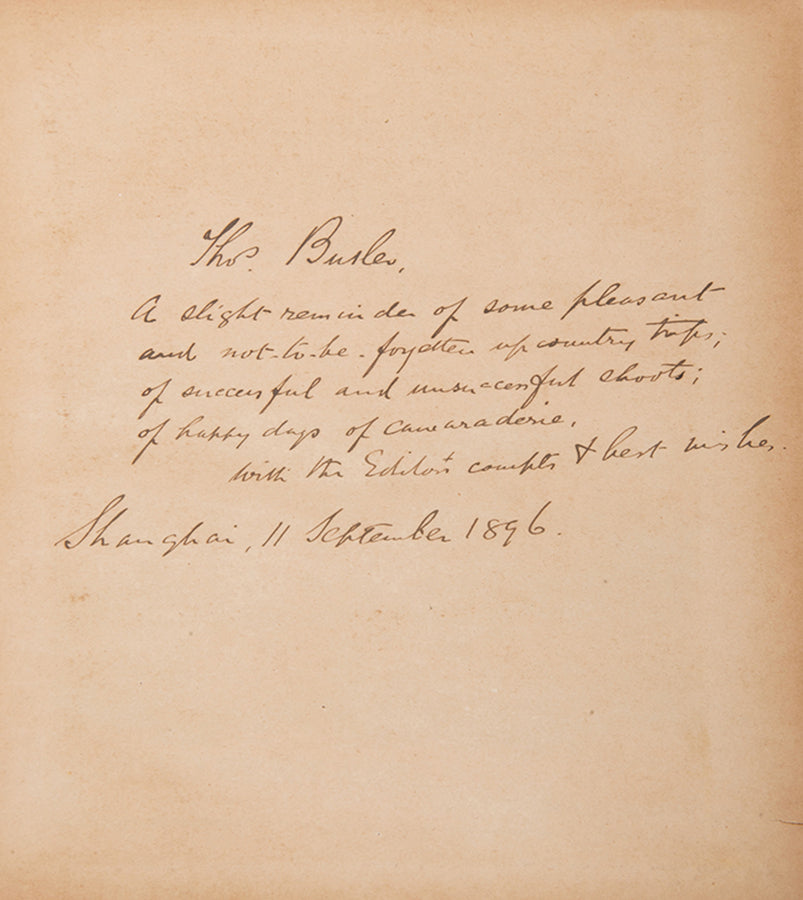 Thos. Butler,
A slight reminder of some pleasant
and not-to-be-forgotten upcountry trips;
of successful and unsuccessful shoots;
of happy days of camaraderie.
with the Editor's compts & best wishes.
Shanghai, 11 September 1896.